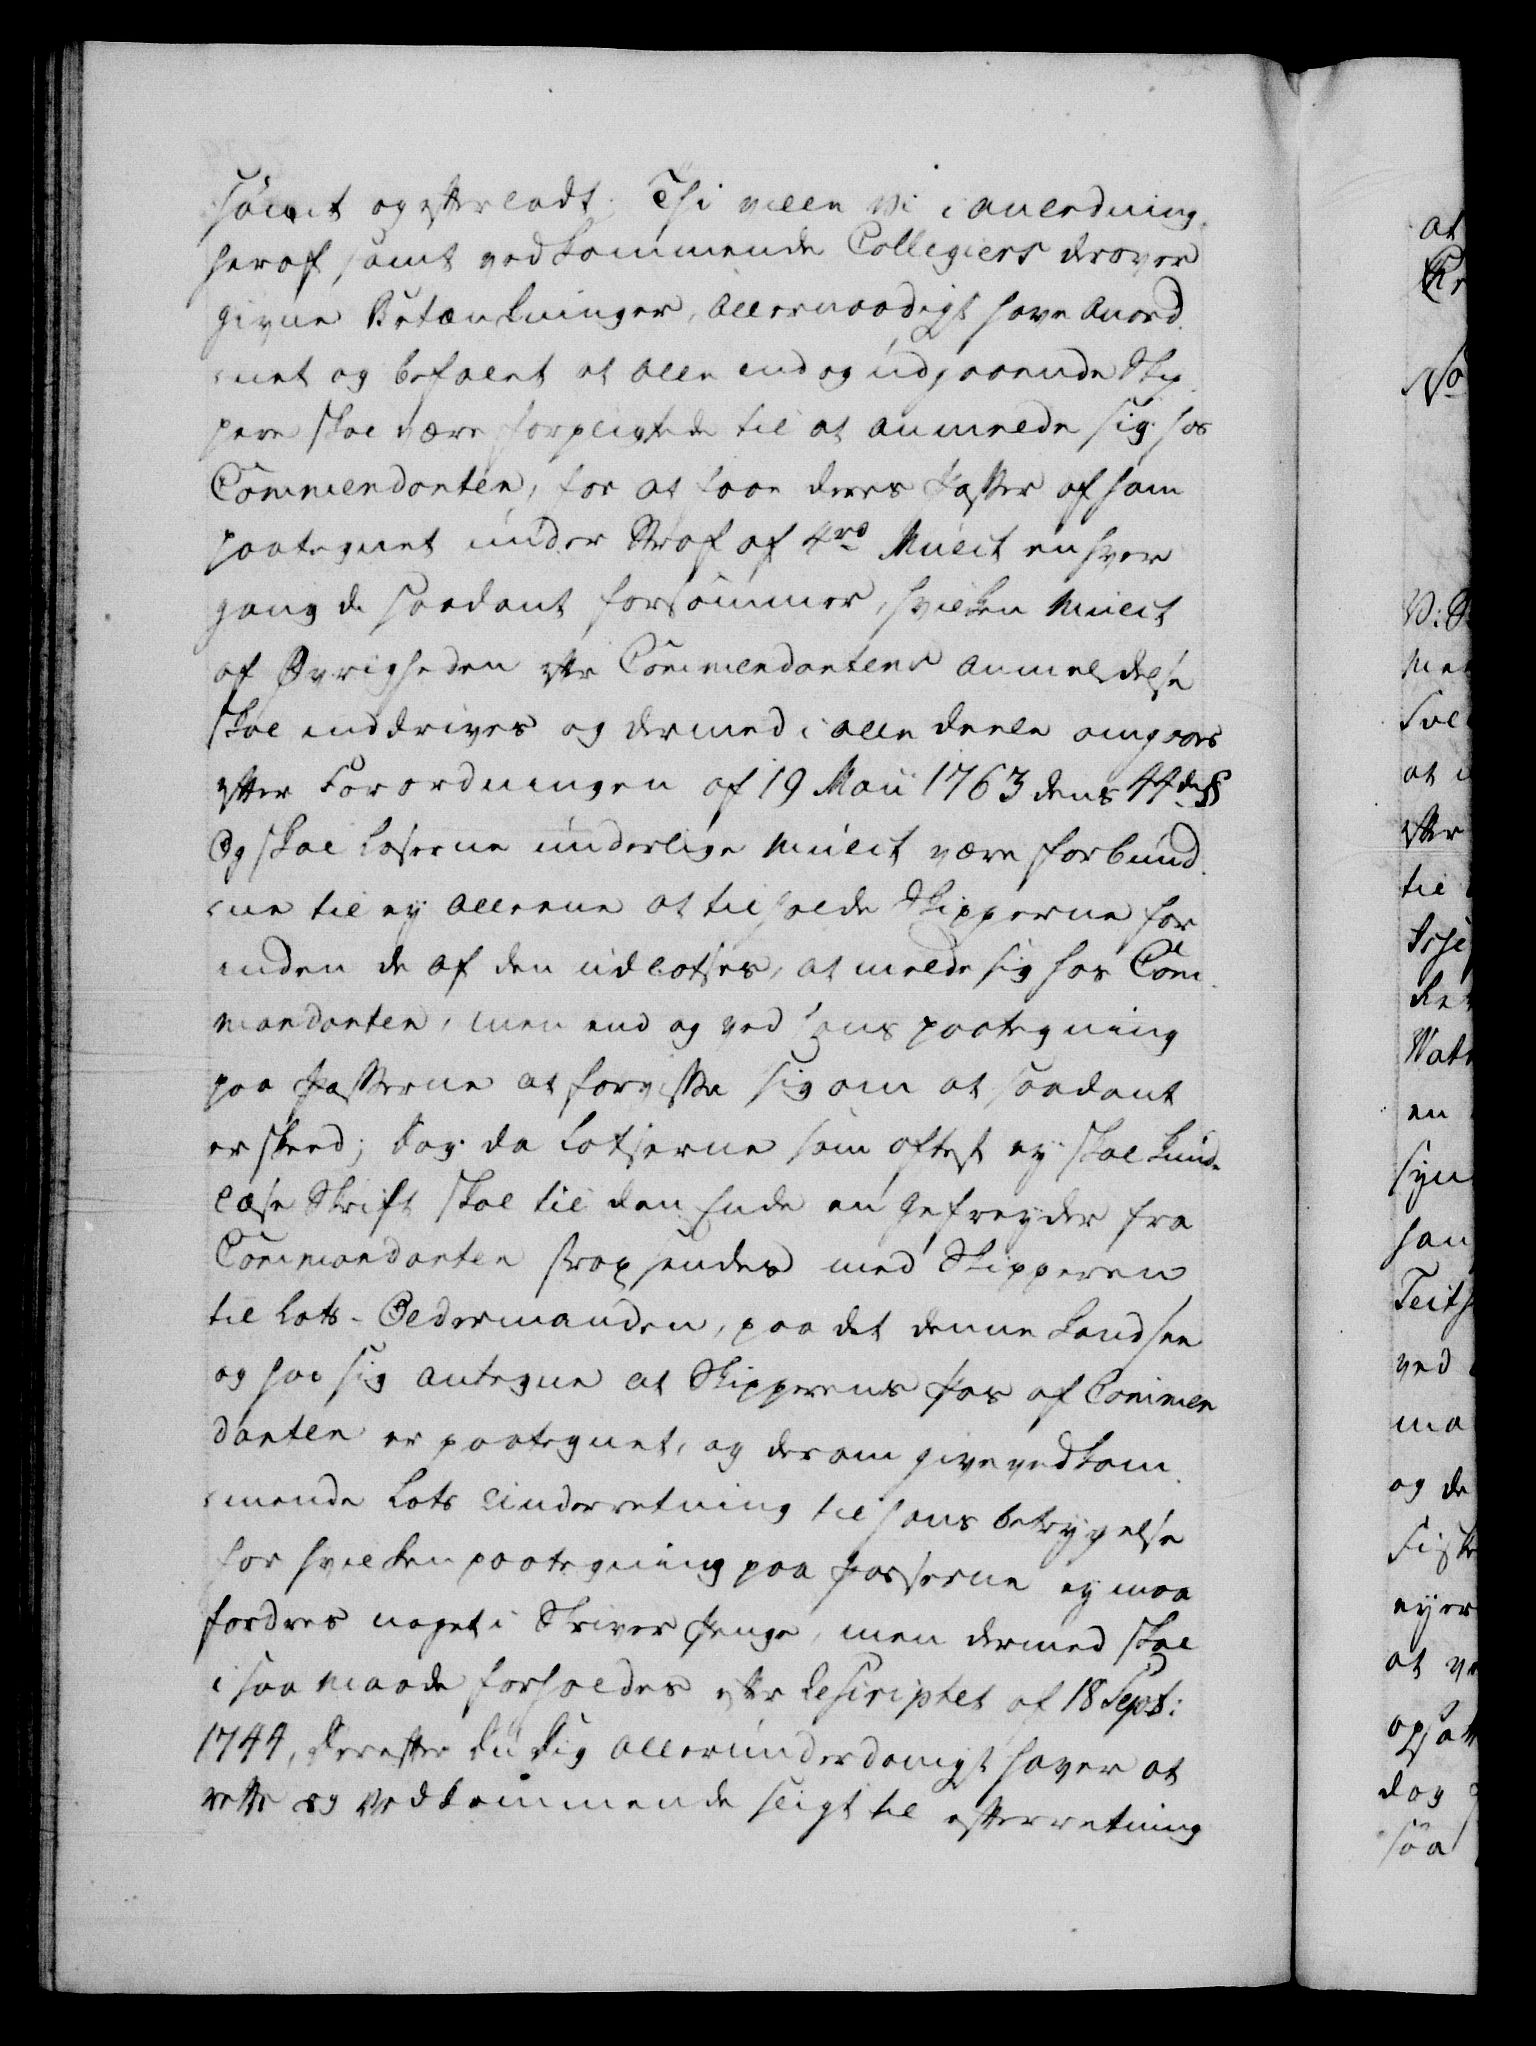 sømt og efterladt. Thi ville Vi i anledning
heraf, samt vedkommende Collegiers derover
givne Betænkninger, Allernaadigst have Anord¬
net og befalet at alle ind og udgaaende Skip¬
pere skal være forpligtede til at anmelde sig hos
Commendanten, for at faae deres Passer af ham
paategnet under Straf af 4rd Mulct en hver
gang de saadant forsømmer, hvilken Mulct
af Øvrigheden efter Commendantens anmeldelse
skal inddrives og dermed i alle deele omgaaes
efter Forordningen af 19 Maii 1763 dens 44de §
Og skal Loserne under lige Mulct være forbund¬
ne til ey alleene at tilholde Skipperne for
inden de af dem udlotses, at melde sig hos Com¬
mandanten, men end og ved hans paategning
paa Passerne at forvisse sig om at saadant
er skeed; Dog da Lotserne som oftest ey skal kunde
læse Skrift skal til den Ende en Gefreyder fra
Commandanten strax sendes med Skipperen
til Lots-Oldermanden, paa det denne kand see
og hos sig antegne at Skipperens Pas af Commen
danten er paategnet, og derom give vedkom¬
mende Lots Underretning til hans betryggelse
for hvilken paategning paa Passerne ey maa
fordres noget i Skriver Penge, men dermed skal
i saa maade forholdes efter Rescriptet af 18 Sept:
1744, Derefter Du Dig allerunderdanigst haver at
rette og Vedkommende sligt til efterretning
at
No
ved
ma
og de
til
en